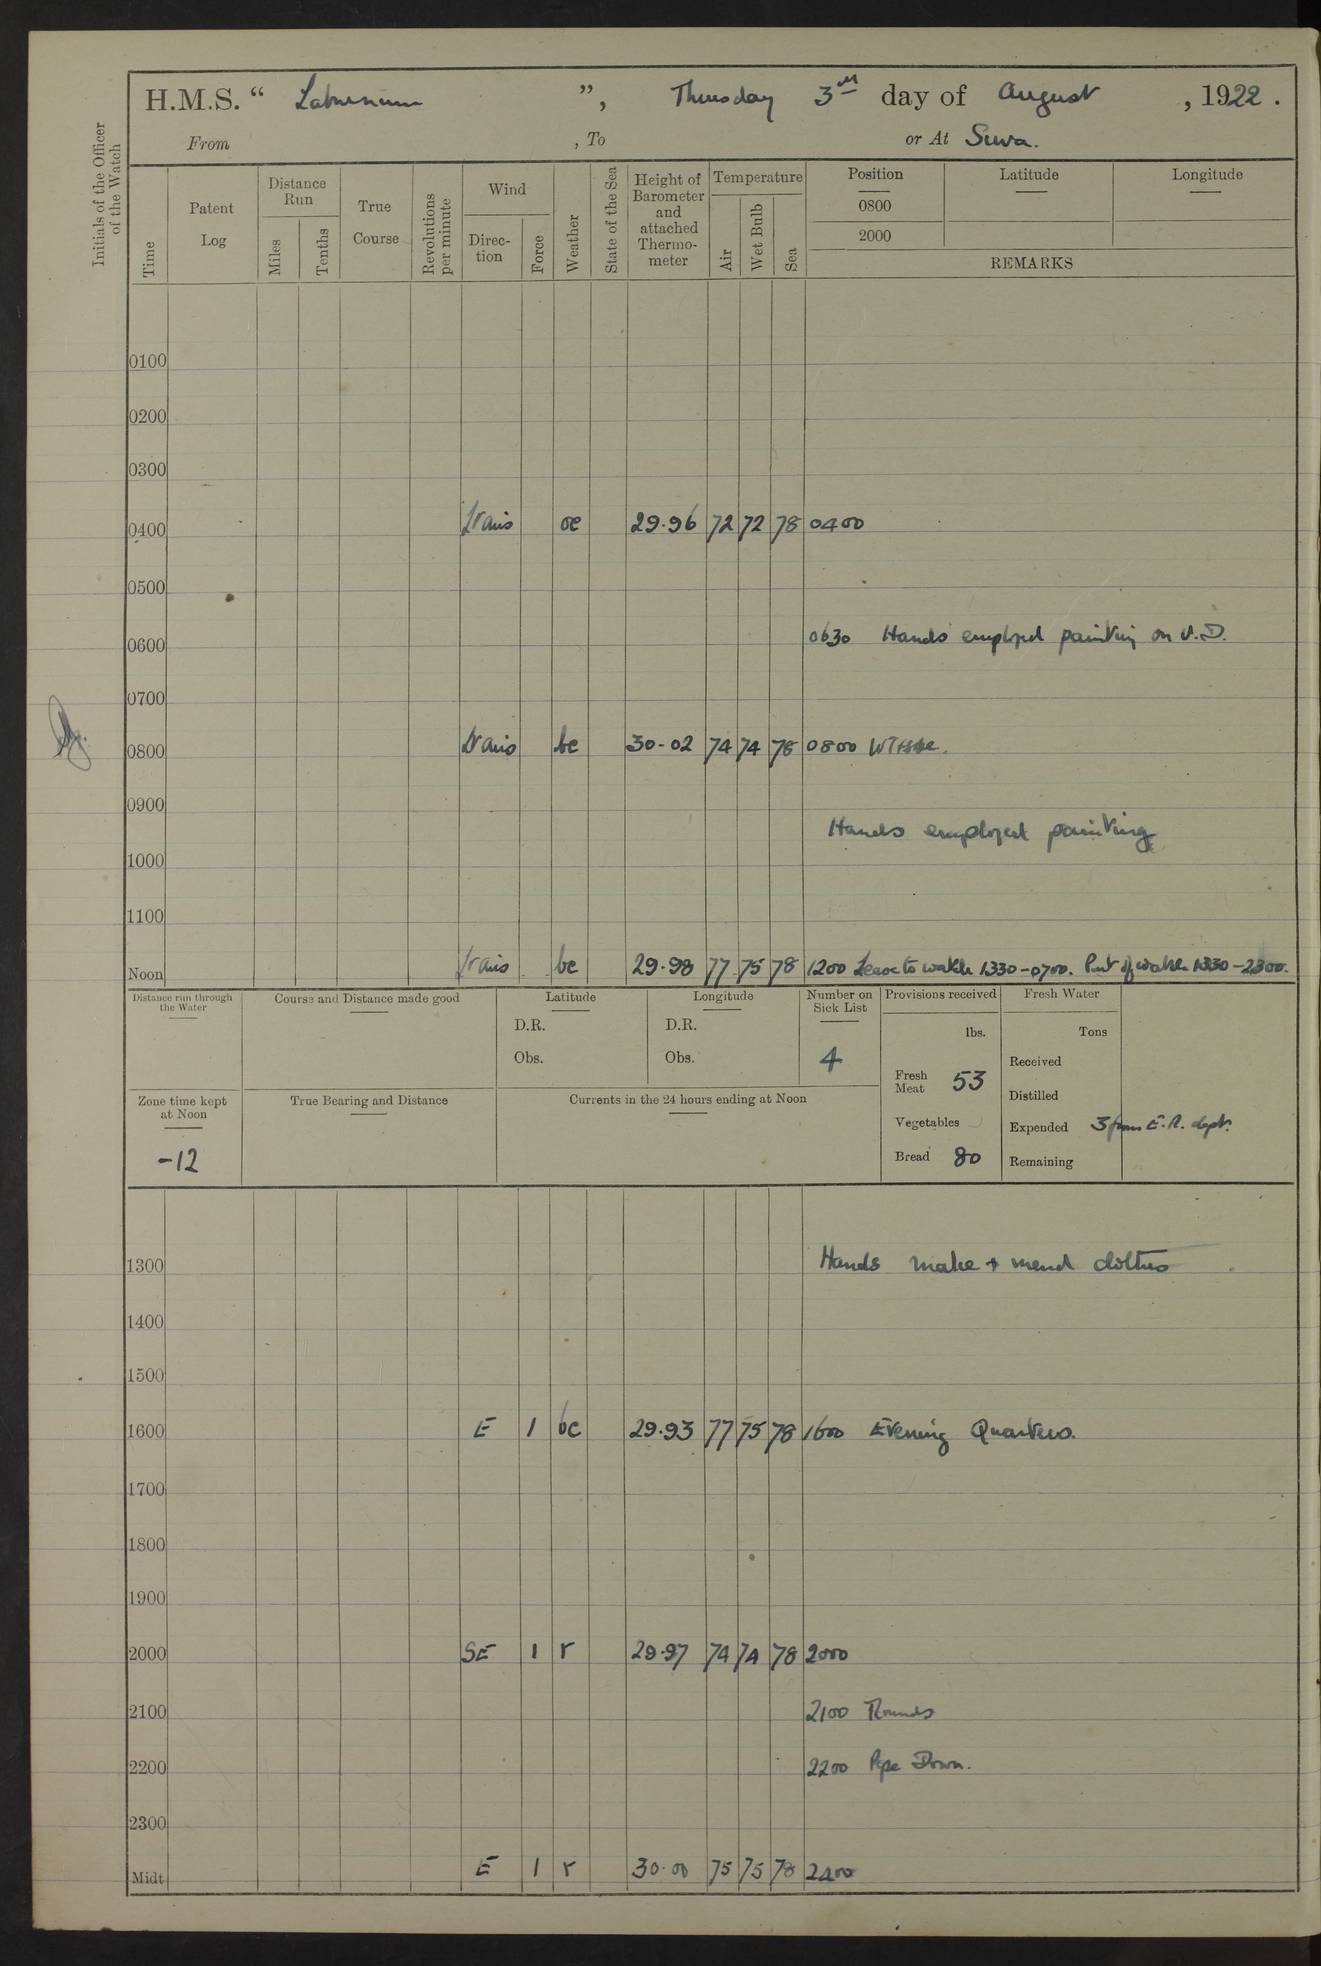 H.M.S. “ Laburnum ”, Thursday 3rd day of August , 1922.
From , To or At Suva.
Initials of the Officer of the Watch
Time
Patent Log
Distance Run
Miles
Tenths
True Course
Revolutions per minute
Wind
Direc-tion
Force
Weather
State of the Sea
Height of Barometer and attached Thermo-meter
Temperature
Air
Wet Bulb
Sea
Position
0800
2000
Latitude
Longitude
REMARKS
0100
0200
0300
0400 Vario oc 29.96 72 72 78 0400
0500
0600 0630 Hands employed painting on U.D.
0700
0800 Vario bc 30-02 74 74 78 0800
0900
Hands employed painting
1000
1100
Noon Vario bc 29.98 77 75 78 1200 Leave to watch 1330-0700. Part of watch 1330-2300.
Distance run through the Water
Course and Distance made good
Latitude
D.R.
Obs.
Longitude
D.R.
Obs.
Number on Sick List
4
Provisions received
lbs.
Fresh Meat 53
Vegetables
Bread 80
Fresh Water
Tons
Received
Distilled
Expended 3 from E.R. dept.
Remaining
Zone time kept at Noon
-12
True Bearing and Distance
Currents in the 24 hours ending at Noon
1300 Hands make + mend clothes
1400
1500
1600 E 1 bc 29.93 77 75 78 1600 Evening Quarters.
1700
1800
1900
2000 SE 1 r 29.97 74 74 78 2000
2100 2100 Rounds
2200 2200 Pipe Down.
2300
Midt E 1 r 30.00 75 75 78 2400